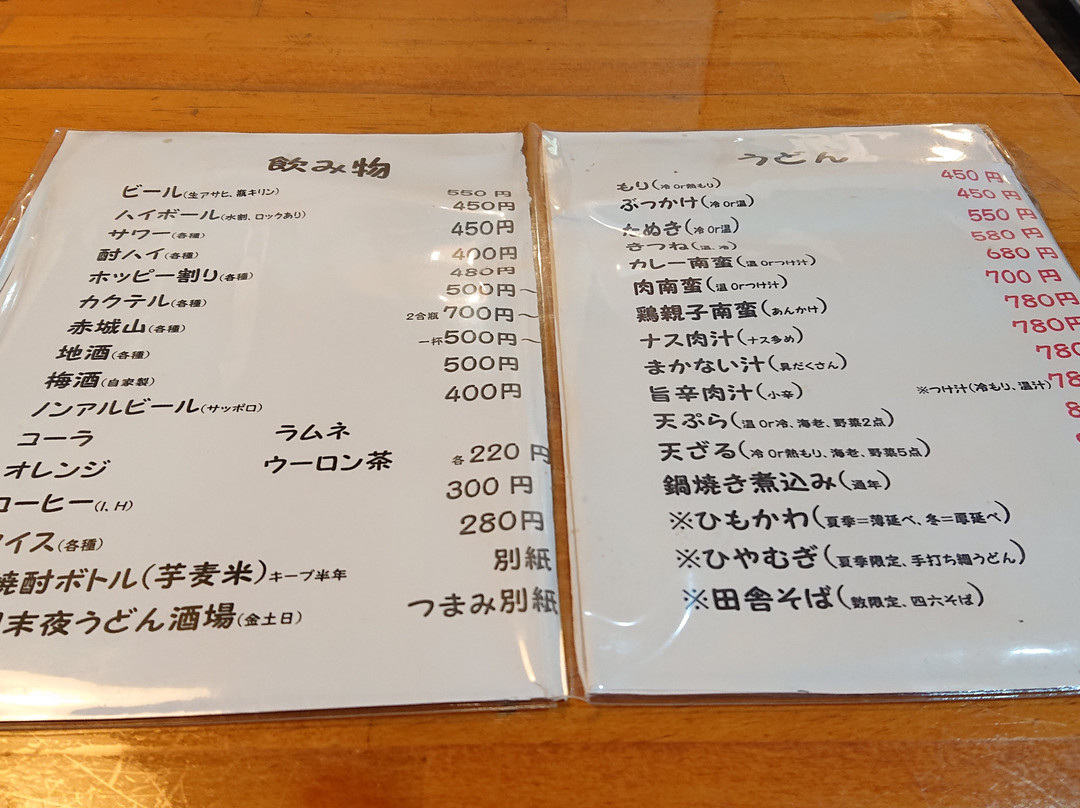 飲み物
ビール(生アサヒ、瓶キリン) 550円
ハイボール(水割、ロックあり) 450円
サワー(各種) 450円
酎ハイ(各種) 400円
ホッピー割り(各種) 480円
カクテル(各種) 500円~
赤城山(各種) 2合瓶 700円~
地酒(各種) 一杯500円~
梅酒(自家製) 500円
ノンアルビール(サッポロ) 400円
コーラ ラムネ
オレンジ ウーロン茶 各220円
コーヒー(I、H) 300円
イス(各種) 280円
焼酎ボトル(芋麦米)キープ半年 別紙
末夜うどん酒場(金土日) つまみ別紙
うどん
もり(冷or熱もり) 450円
ぶっかけ(冷or温) 450円
たぬき(冷or温) 550円
きつね(温、冷) 580円
カレー南蛮(温orつけ汁) 680円
肉南蛮(温orつけ汁) 700円
鶏親子南蛮(あんかけ) 780円
ナス肉汁(ナス多め) 780円
まかない汁(具だくさん) 780
旨辛肉汁(小辛) ※つけ汁(冷もり、温汁)78
天ぷら(温or冷、海老、野菜2点) 8
天ざる(冷or熱もり、海老、野菜5点)
鍋焼き煮込み(通年)
※ひもかわ(夏季=薄延べ、冬=厚延べ)
※ひやむぎ(夏季限定、手打ち細うどん)
※田舎そば(数限定、四六そば)